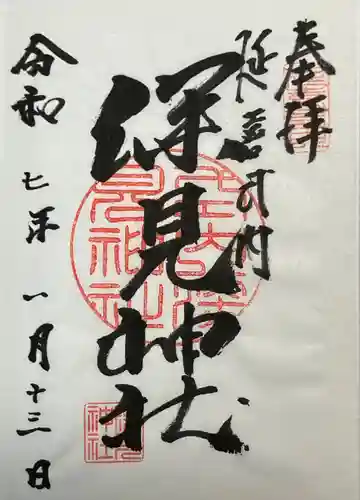 奉拝
延喜式内
深見神社
令和七年一月十三日